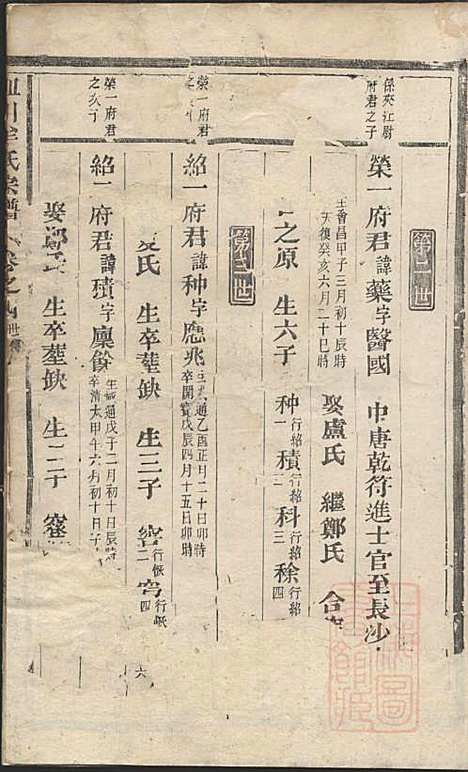 保夾江尉
府君之子
第二世
榮一府君諱藥字醫國 中唐乾符進士官至長沙
生會昌甲子三月初十辰時
天復癸亥六月二十巳時
娶盧氏 繼鄭氏 合
之原 生六子 种行紹一 積行紹二 科行紹三 稌行紹四
第三世
榮一府君
之 子
紹一府君諱种字應兆 通乙酉正月二十日卯時
卒開寶戊辰四月十五日卯時
氏 生卒塟缺 生三子 行恢二 行恢四
榮一府君
之次子
紹二府君諱積字廩餘 生 通戊子二月初十日辰時
卒清太甲午六月初十日子
娶鄭氏 生卒塟缺 生二子
氏宗譜 卷之
世
六